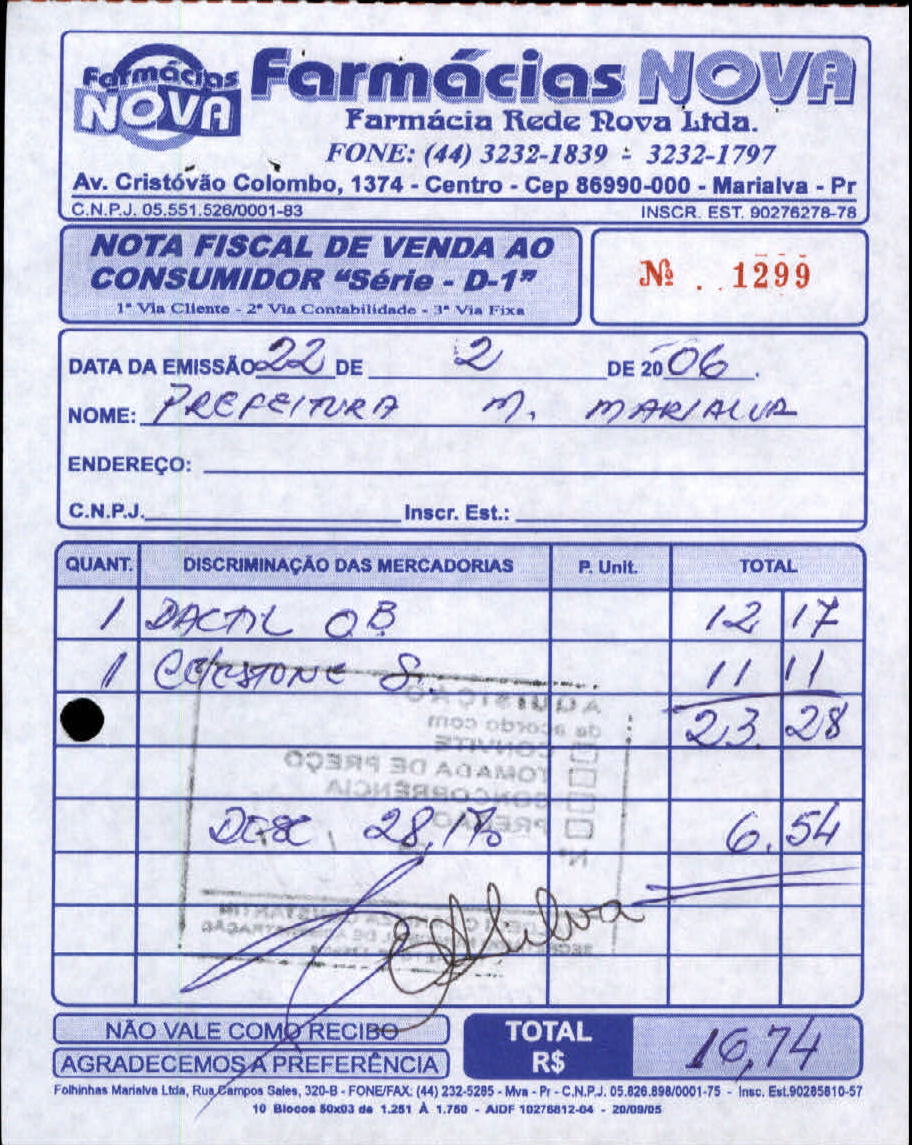 Farmácias NOVA
Farmácias NOVA
Farmácia Rede Nova Ltda.
FONE: (44) 3232-1839 - 3232-1797
Av. Cristóvão Colombo, 1374 - Centro - Cep 86990-000 - Marialva - Pr
C.N.P.J. 05.551.526/0001-83 INSCR. EST. 90276278-78
NOTA FISCAL DE VENDA AO
CONSUMIDOR "Série - D-1"
1ª Via Cliente - 2ª Via Contabilidade - 3ª Via Fixa
Nº . 1299
DATA DA EMISSÃO 22 DE 2 DE 2006.
NOME: PREFEITURA M. MARIALVA
ENDEREÇO:
C.N.P.J. Inscr. Est.:
QUANT. DISCRIMINAÇÃO DAS MERCADORIAS P. Unit. TOTAL
1 DACTIL OB 12 17
1 CELESTONE S. 11 11
AQUISIÇÃO
de acordo com
23 28
CONVITE
TOMADA DE PREÇO
CONCORRENCIA
PREGÃO
Nº
DESC 28,1% 6,54
Silva
NÃO VALE COMO RECIBO
AGRADECEMOS A PREFERÊNCIA
TOTAL
R$ 16,74
Folhinhas Marialva Ltda, Rua Campos Sales, 320-B - FONE/FAX: (44) 232-5285 - Mva - Pr - C.N.P.J. 05.826.898/0001-75 - Insc. Est.90285810-57
10 Blocos 50x03 de 1.251 À 1.750 - AIDF 10276812-04 - 20/09/05